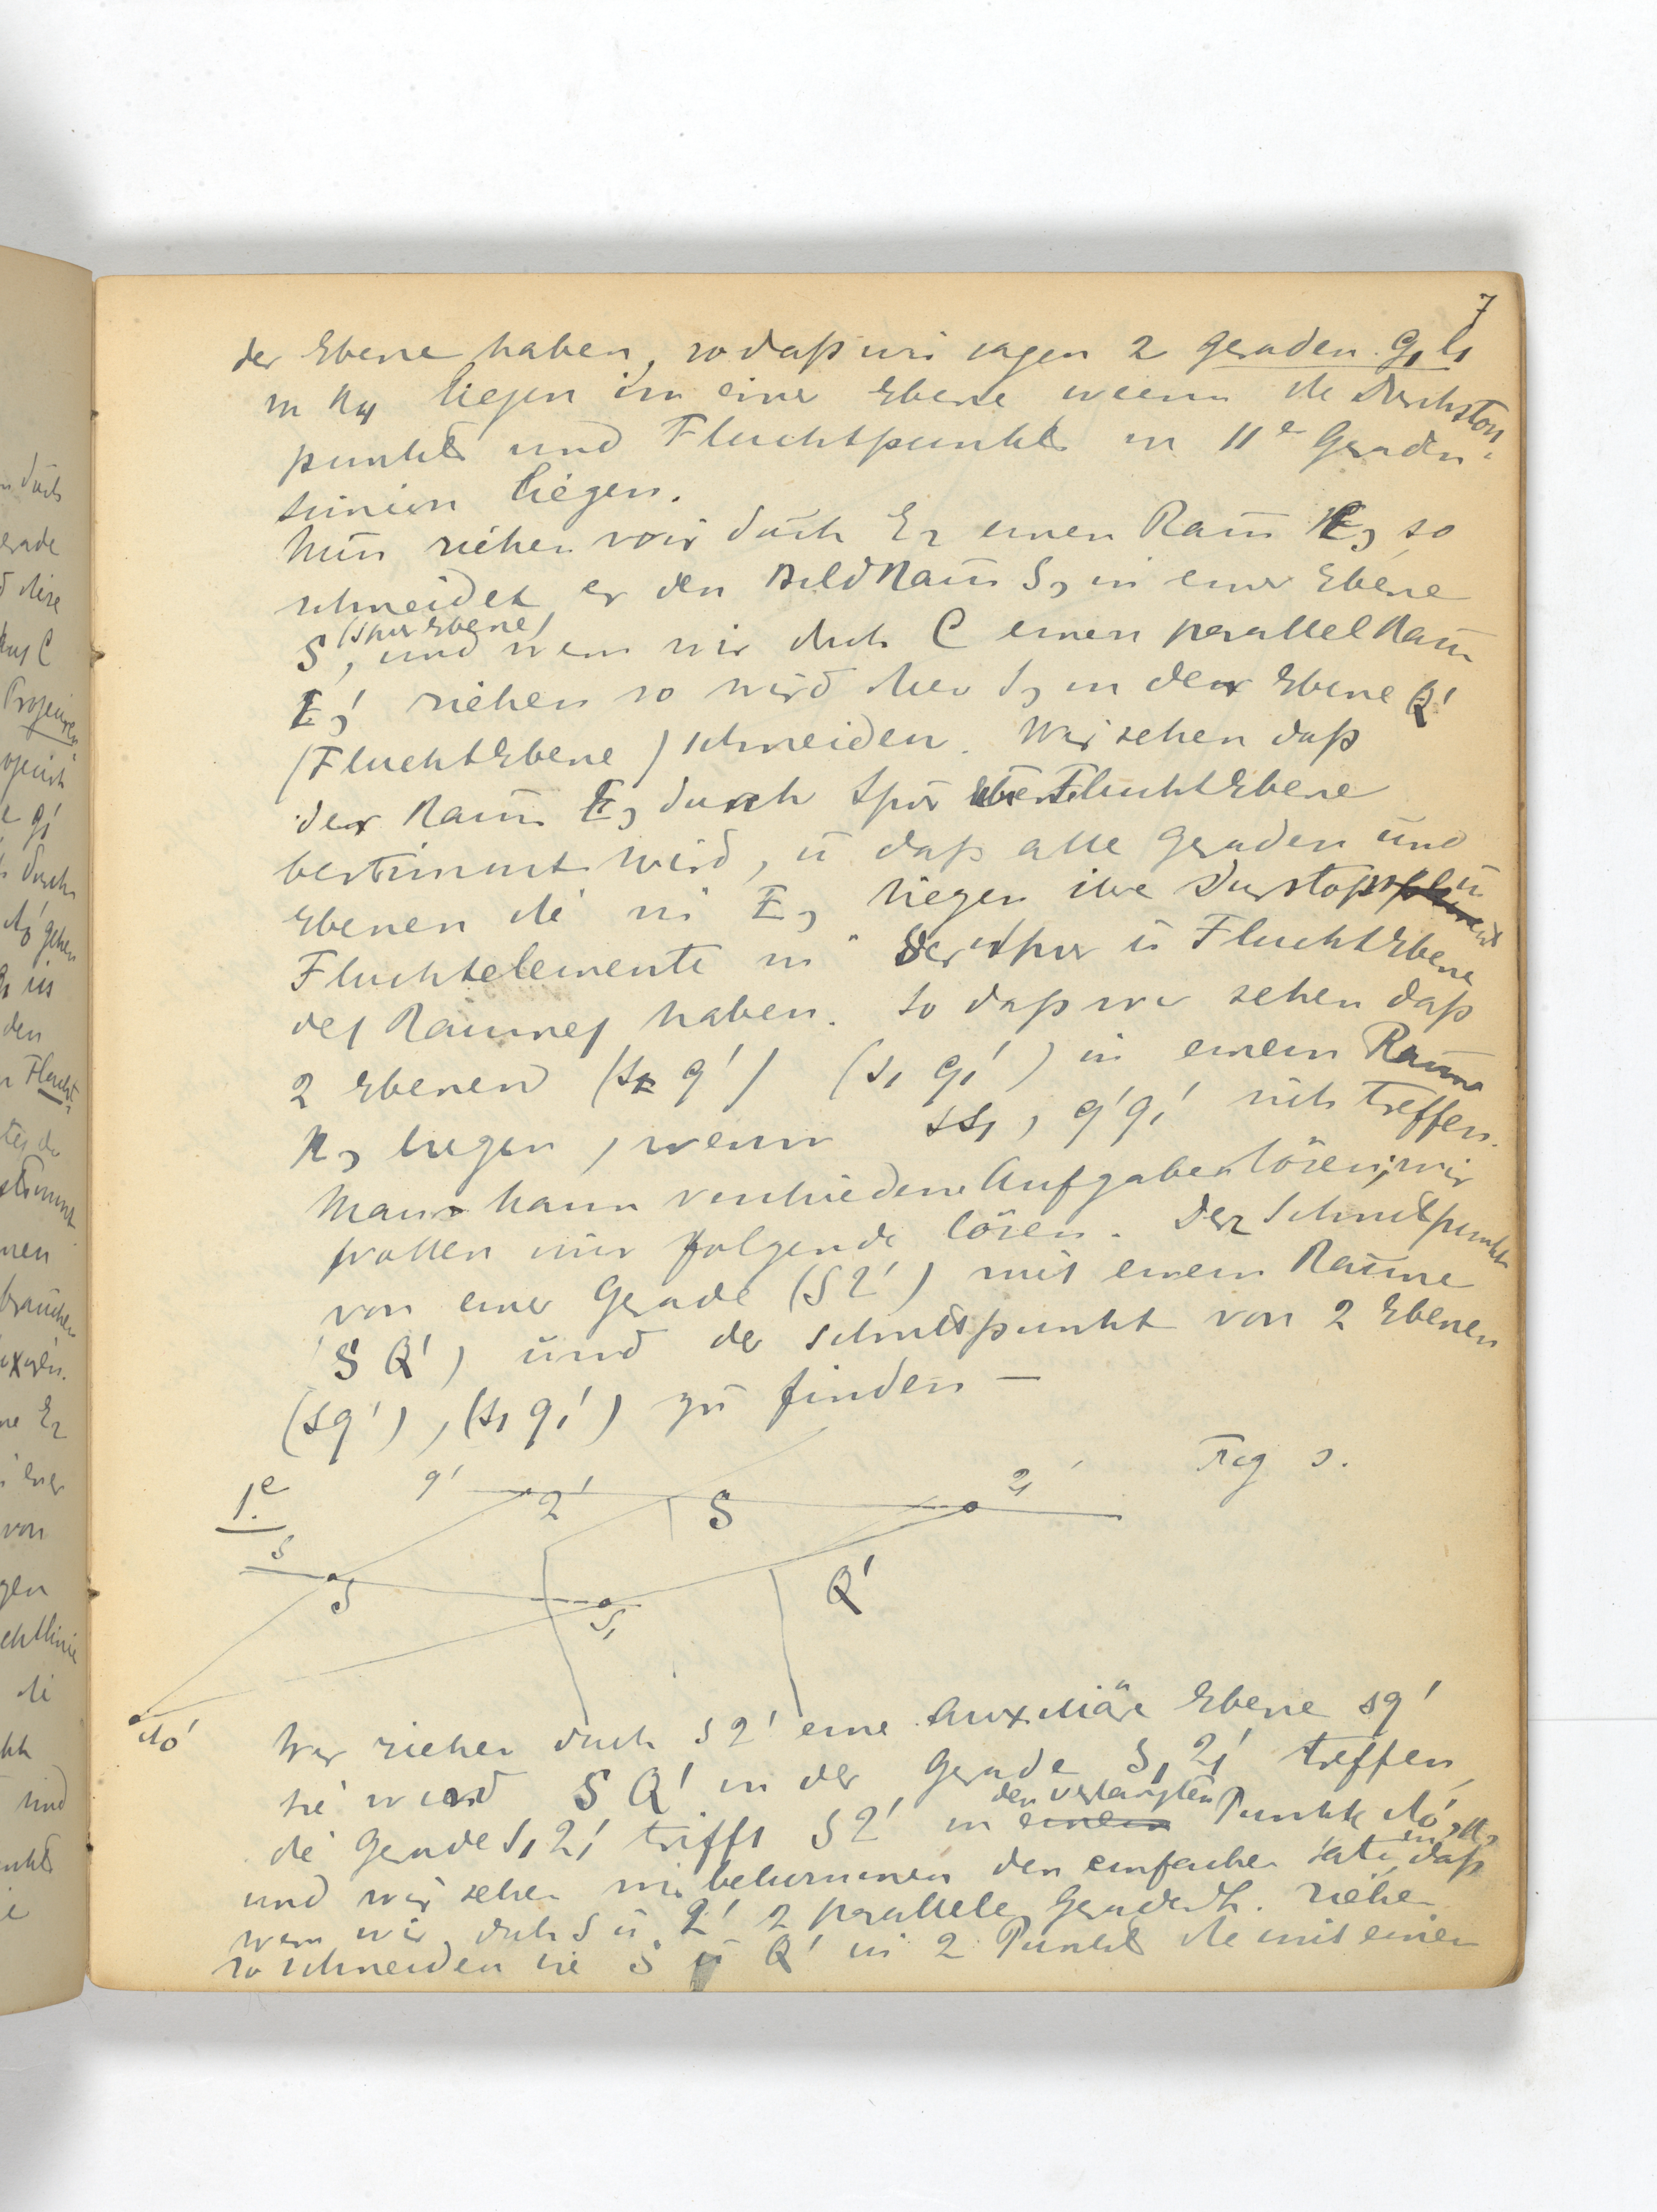 7
der Ebene haben, so daß wir sagen 2 Geraden G₁ l₁
in R₄ liegen in einer Ebene wenn die Durchstoß
punkte und Fluchtpunkte in 11ᵉ Geraden
liegen.
Nun ziehen wir durch E₂ einen Raum E₃ so
schneidet er den Bild Raum S₃ in einer Ebene
(Spur Ebene)
S, und wenn wir durch C einen parallel Raum
E₃' ziehen so wird dieser S₃ in der Ebene Q'
(Flucht Ebene) schneiden. Wir sehen daß
der Raum E₃ durch Spur Flucht Ebene
bestimmt wird, ü daß alle Geraden und
Ebenen die in E₃ liegen ihre Durstoß ü
Fluchtelemente in der Spur ü Flucht Ebene
des Raumes haben. So daß wir sehen daß
2 Ebenen (s q') (s₁ q₁') in einem Raum
R₃ liegen, wenn ss₁, q'q₁' sich treffen.
Man kann verschiedene Aufgaben lösen, wir
wollen nur folgende lösen. Der Schnittpunkt
von einer Gerade (S 2') mit einem Raume
(S Q') und der Schnittpunkt von 2 Ebenen
(s q'), (s₁ q₁') zu finden —
1.ᵉ
q'
2'
S
2₁'
Fig 3.
s
S
S₁
Q'
M₀'
Wir ziehen durch S 2' eine Auxiliäre Ebene s q'
sie wird S Q' in der Gerade S₁ 2₁' treffen,
den verlangten
die Gerade S₁ 2₁' trifft S 2' in einem Punkte M₀',
und wir sehen wir bekommen den einfachen daß
wenn wir durch S ü 2' 2 parallele Geraden ziehen
so schneiden sie S ü Q' in 2 Punkte die mit einen